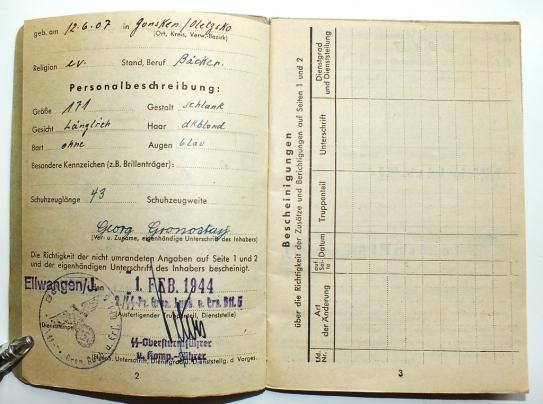 geb. am 12.6.07 in Jonsken/Oletzko
(Ort, Kreis, Verw.-Bezirk)
Religion ev. Stand, Beruf Bäcker
Personalbeschreibung:
Größe 171 Gestalt schlank
Gesicht Länglich Haar dkblond
Bart ohne Augen blau
Besondere Kennzeichen (z.B. Brillenträger):
Schuhzeuglänge 43 Schuhzeugweite
Georg Gronostay
(Vor- u. Zuname, eigenhändige Unterschrift des Inhabers)
Die Richtigkeit der nicht umrandeten Angaben auf Seite 1 und 2
und der eigenhändigen Unterschrift des Inhabers bescheinigt.
Ellwangen/J. den 1. FEB. 1944
u. Ers. Btl. 5
(Ausfertigender Truppenteil, Dienststelle)
Dienststempel
SS-Obersturmführer
u. Komp.-Führer
(Eigenh. Unterschrift, Dienstgrad u. Dienststellg. d. Vorges.
2
Bescheinigungen
über die Richtigkeit der Zusätze und Berichtigungen auf Seiten 1 und 2
Lfd. Nr.
Art der Änderung
auf Sei-te
Datum
Truppenteil
Unterschrift
Dienstgrad und Dienststellung
3